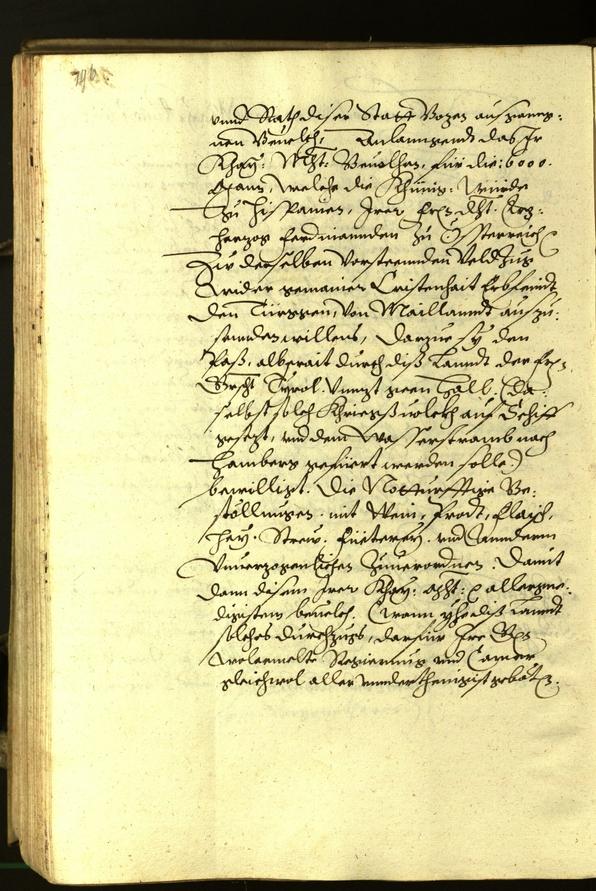 vnnd Rath diser Statt Bozen ausganng:
nen Beuelch, Anlanngendt das Ir
Khay: Mt: Beuolhen, für die: 6000.
Mann, welche die Khünig: Würde
zu Hispanien, Irer Frl: Dht: Erz:
herzog Ferdinannden zu Österreich
Zu derselben vorsteenden Veldtzug
wider gemainer Cristenhait Erbfeindt
den Türggen, von Maillanndt auszu:
senden willens, Darzue sy den
Paß, alberait durch diß Lanndt der Frl:
Grfscht Tyrol. vnnzt geen Hall, (Da:
selbst solch Khriegßuolckh auf Schiff
gesezt, vnd dem Wasserstramb nach
hamberg gefüert werden solle)
bewilligt. Die Notturfftige Be:
stöllungen mit Wein, Prodt, Flaisch,
Hey. Strew. Fueterey. vnd Annderm
Vnuerzogenlichen Zuuerordnen. Damit
dann disem Irer Khay: Mht: allergne:
digistem beuelch, (Wann yhe diß Lanndt
solches durchzugs, darfür Ire
Wolermelte Regierung vnd Camer
gleichwol aller vnnderthenigist gebeten.